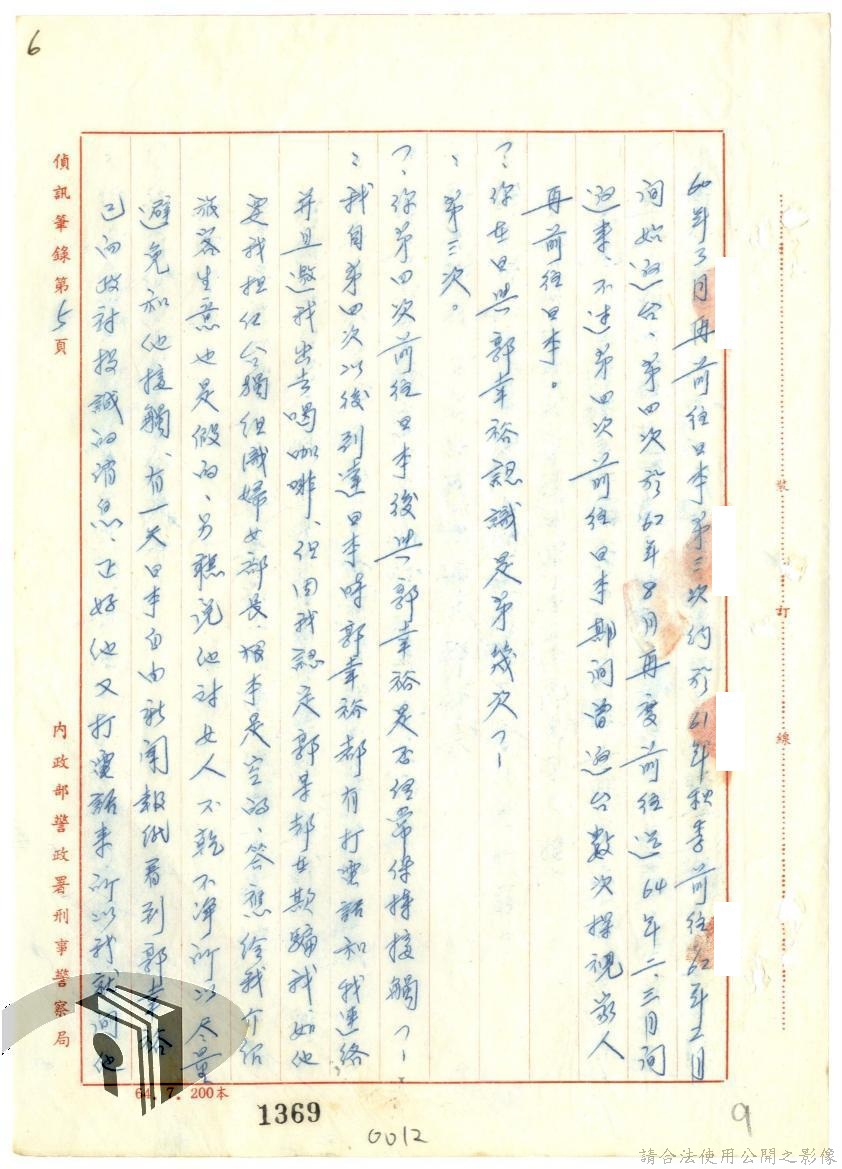 6
60年3月再前往日本第三次約於61年秋季前往62年二月
間始返台、第四次於62年8月再度前往迄64年二、三月間
返来、不过第四次前往日本期间曾返台數次探視家人
再前往日本。
你在日與郭幸裕認識是第幾次
第三次。
你第四次前往日本後與郭幸裕是否经常保持接觸
我自第四次以後到達日本時郭幸裕都有打電話和我連络
并且邀我出去喝咖啡、但因我認定郭某都在欺騙我、如他
要我担任台獨组織婦女部長、根本是空的、答應给我介绍
旅客生意也是假的、另聽说他对女人不乾不净所以尽量
避免和他接觸、有一天日本自由新聞報纸看到郭幸裕
已向政府投誠的消息、正好他又打電話来所以我就问他
偵訊筆錄第5頁
內政部警政署刑事警察局
裝
訂
線
64.7.200本
1369
0012
9
請合法使用公開之影像